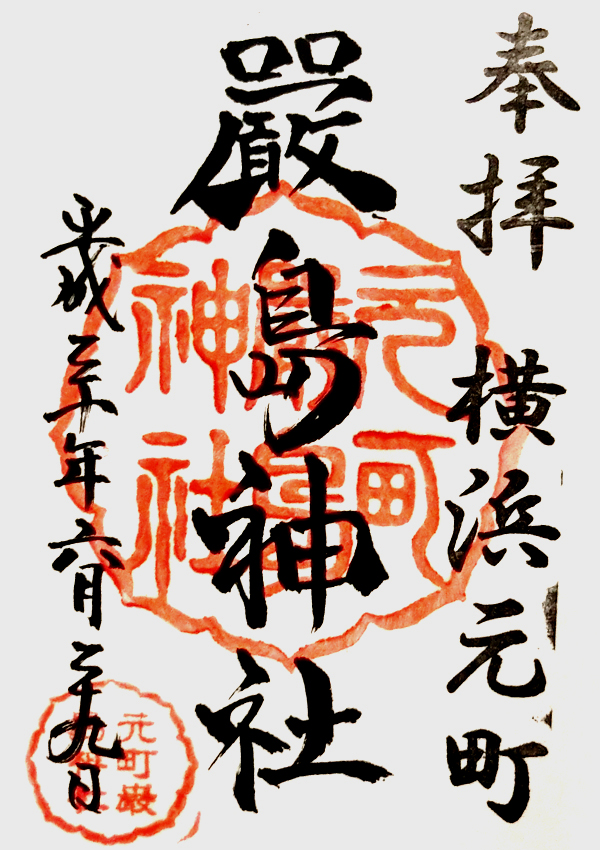 奉拝
横浜元町
嚴島神社
平成三十年六月二十九日
元町
嚴島
神社
元町嚴
島神社